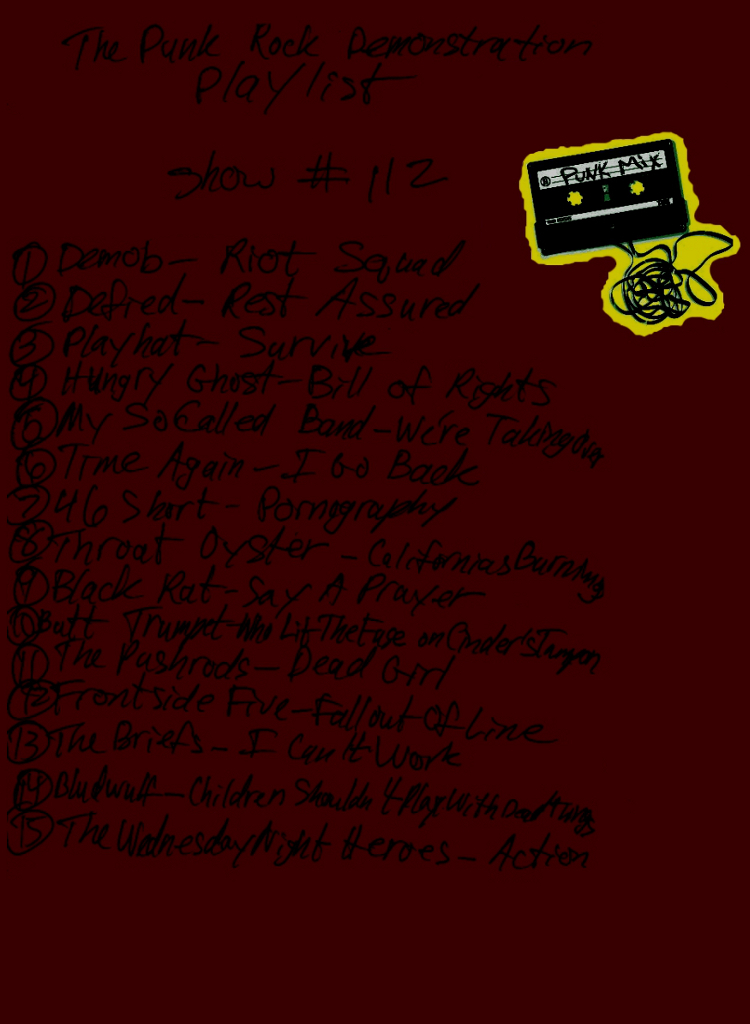 The Punk Rock Demonstration
Playlist
Show # 112
PUNK MIX
1 Demob - Riot Squad
2 Defied - Rest Assured
3 Playhat - Survive
4 Hungry Ghost - Bill of Rights
5 My So Called Band - We're Taking Over
6 Time Again - I Go Back
7 46 Short - Pornography
8 Throat Oyster - Californias Burning
9 Black Rat - Say A Prayer
10 Butt Trumpet - Who Lit The Fuse on Cinder's Tampon
11 The Pushrods - Dead Girl
12 Frontside Five - Fall out Of Line
13 The Briefs - I Can't Work
14 Bludwulf - Children Shouldn't Play With Dead Things
15 The Wednesday Night Heroes - Action